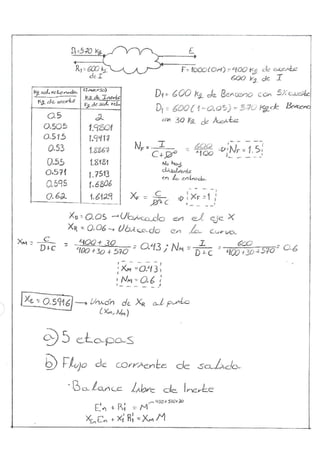 D₁=570 kg
E
R₁=600 kg de I
F=1000(0.4)=400 kg de aceite
600 kg de I
Kg sol. retenida
Kg de inerte
(Inverso)
Kg de Inerte
Kg de sol. rete
0.5 2
0.505 1.9801
0.515 1.9417
0.53 1.8867
0.55 1.8181
0.571 1.7513
0.595 1.6806
0.62 1.6129
D₁= 600 kg de Benceno con 5% aceite
D₁= 600(1-0.05)=570 kg de Benceno
con 30 kg de Aceite
N_F = I / (C+D) = 600/400 NF=1.5
No hay disolvente en la entrada
X_F = C / (D+C) XF=1
X_D=0.05 → Ubicado en el eje X
X_R=0.06 → Ubicado en la curva.
X_M = C / (D+C) = (400+30) / (400+30+570) = 0.43 ; N_M = I / (D+C) = 600 / (400+30+570) = 0.6
X_M=0.43
N_M=0.6
XE=0.5916 → Unión de XR al punto
(XM, NM)
a) 5 etapas
b) Flujo de corriente de salida
· Balance Libre de Inerte
E'n + R'1 = M 400+570+30
XEn E'n + X'1 R'1 = XM M